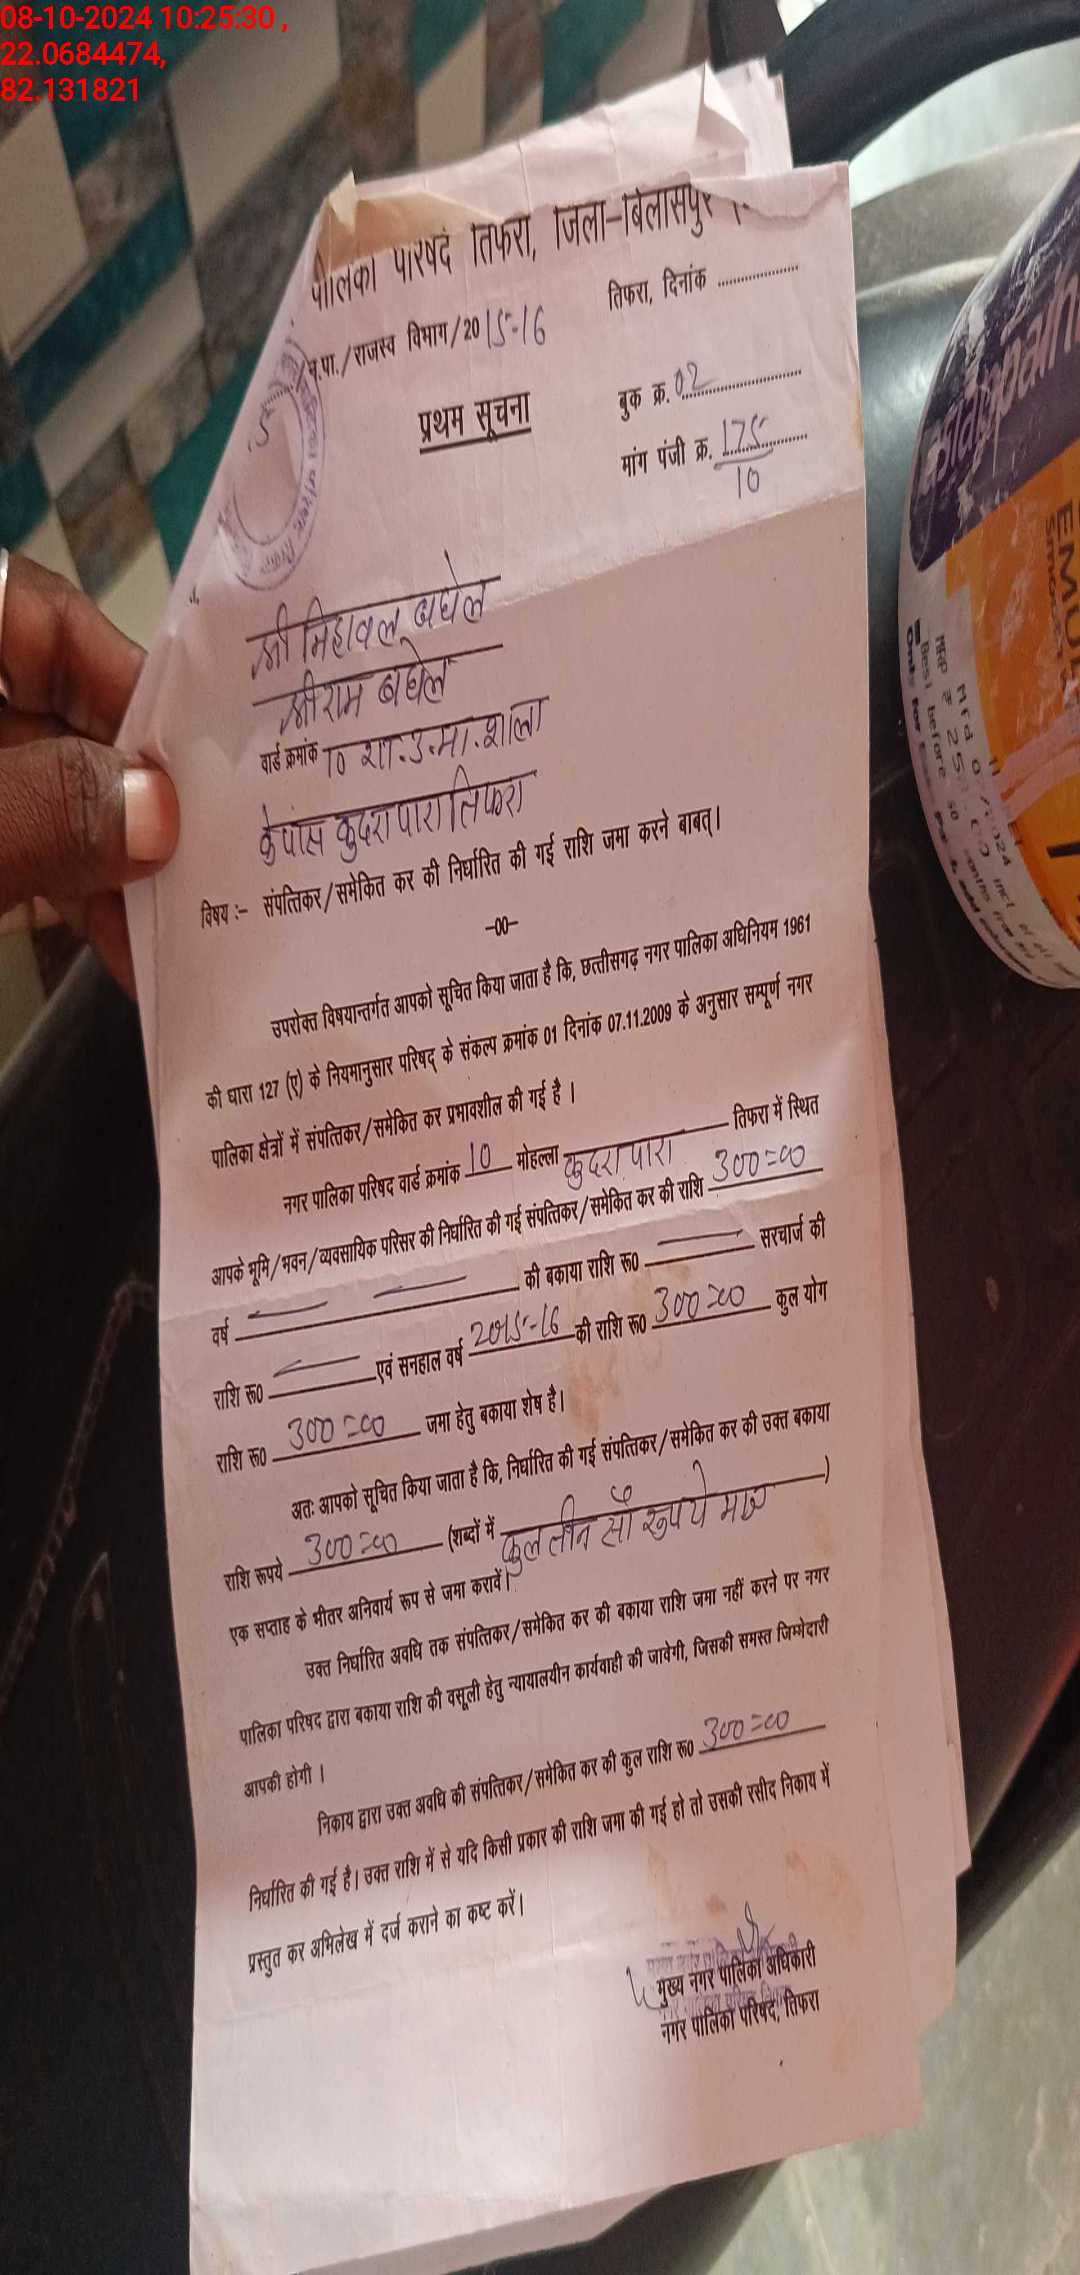 08-10-2024 10:25:30 ,
22.0684474,
82.131821
पालिका परिषद तिफरा, जिला-बिलासपुर
न.पा./राजस्व विभाग/2015-16
तिफरा, दिनांक ..................
प्रथम सूचना
बुक क्र. 02
मांग पंजी क्र. 175/10
श्री निहावल बघेल
श्रीराम बघेल
वार्ड क्रमांक 10 शा.उ.मा.शाला
के पास कुदरापारा तिफरा
विषय :- संपत्तिकर/समेकित कर की निर्धारित की गई राशि जमा करने बाबत्।
-00-
उपरोक्त विषयान्तर्गत आपको सूचित किया जाता है कि, छत्तीसगढ़ नगर पालिका अधिनियम 1961
की धारा 127 (ए) के नियमानुसार परिषद् के संकल्प क्रमांक 01 दिनांक 07.11.2009 के अनुसार सम्पूर्ण नगर
पालिका क्षेत्रों में संपत्तिकर/समेकित कर प्रभावशील की गई है ।
नगर पालिका परिषद वार्ड क्रमांक 10 मोहल्ला कुदरापारा तिफरा में स्थित
आपके भूमि/भवन/व्यवसायिक परिसर की निर्धारित की गई संपत्तिकर/समेकित कर की राशि 300=00
वर्ष — — की बकाया राशि रू0 — सरचार्ज की
राशि रू0 — एवं सनहाल वर्ष 2015-16 की राशि रू0 300=00 कुल योग
राशि रू0 300=00 जमा हेतु बकाया शेष है।
अतः आपको सूचित किया जाता है कि, निर्धारित की गई संपत्तिकर/समेकित कर की उक्त बकाया
राशि रूपये 300=00 (शब्दों में कुल तीन सौ रुपये मात्र)
एक सप्ताह के भीतर अनिवार्य रूप से जमा करावें।
उक्त निर्धारित अवधि तक संपत्तिकर/समेकित कर की बकाया राशि जमा नहीं करने पर नगर
पालिका परिषद द्वारा बकाया राशि की वसूली हेतु न्यायालयीन कार्यवाही की जावेगी, जिसकी समस्त जिम्मेदारी
आपकी होगी ।
निकाय द्वारा उक्त अवधि की संपत्तिकर/समेकित कर की कुल राशि रू0 300=00
निर्धारित की गई है। उक्त राशि में से यदि किसी प्रकार की राशि जमा की गई हो तो उसकी रसीद निकाय में
प्रस्तुत कर अभिलेख में दर्ज कराने का कष्ट करें।
मुख्य नगर पालिका अधिकारी
नगर पालिका परिषद, तिफरा
EMUL